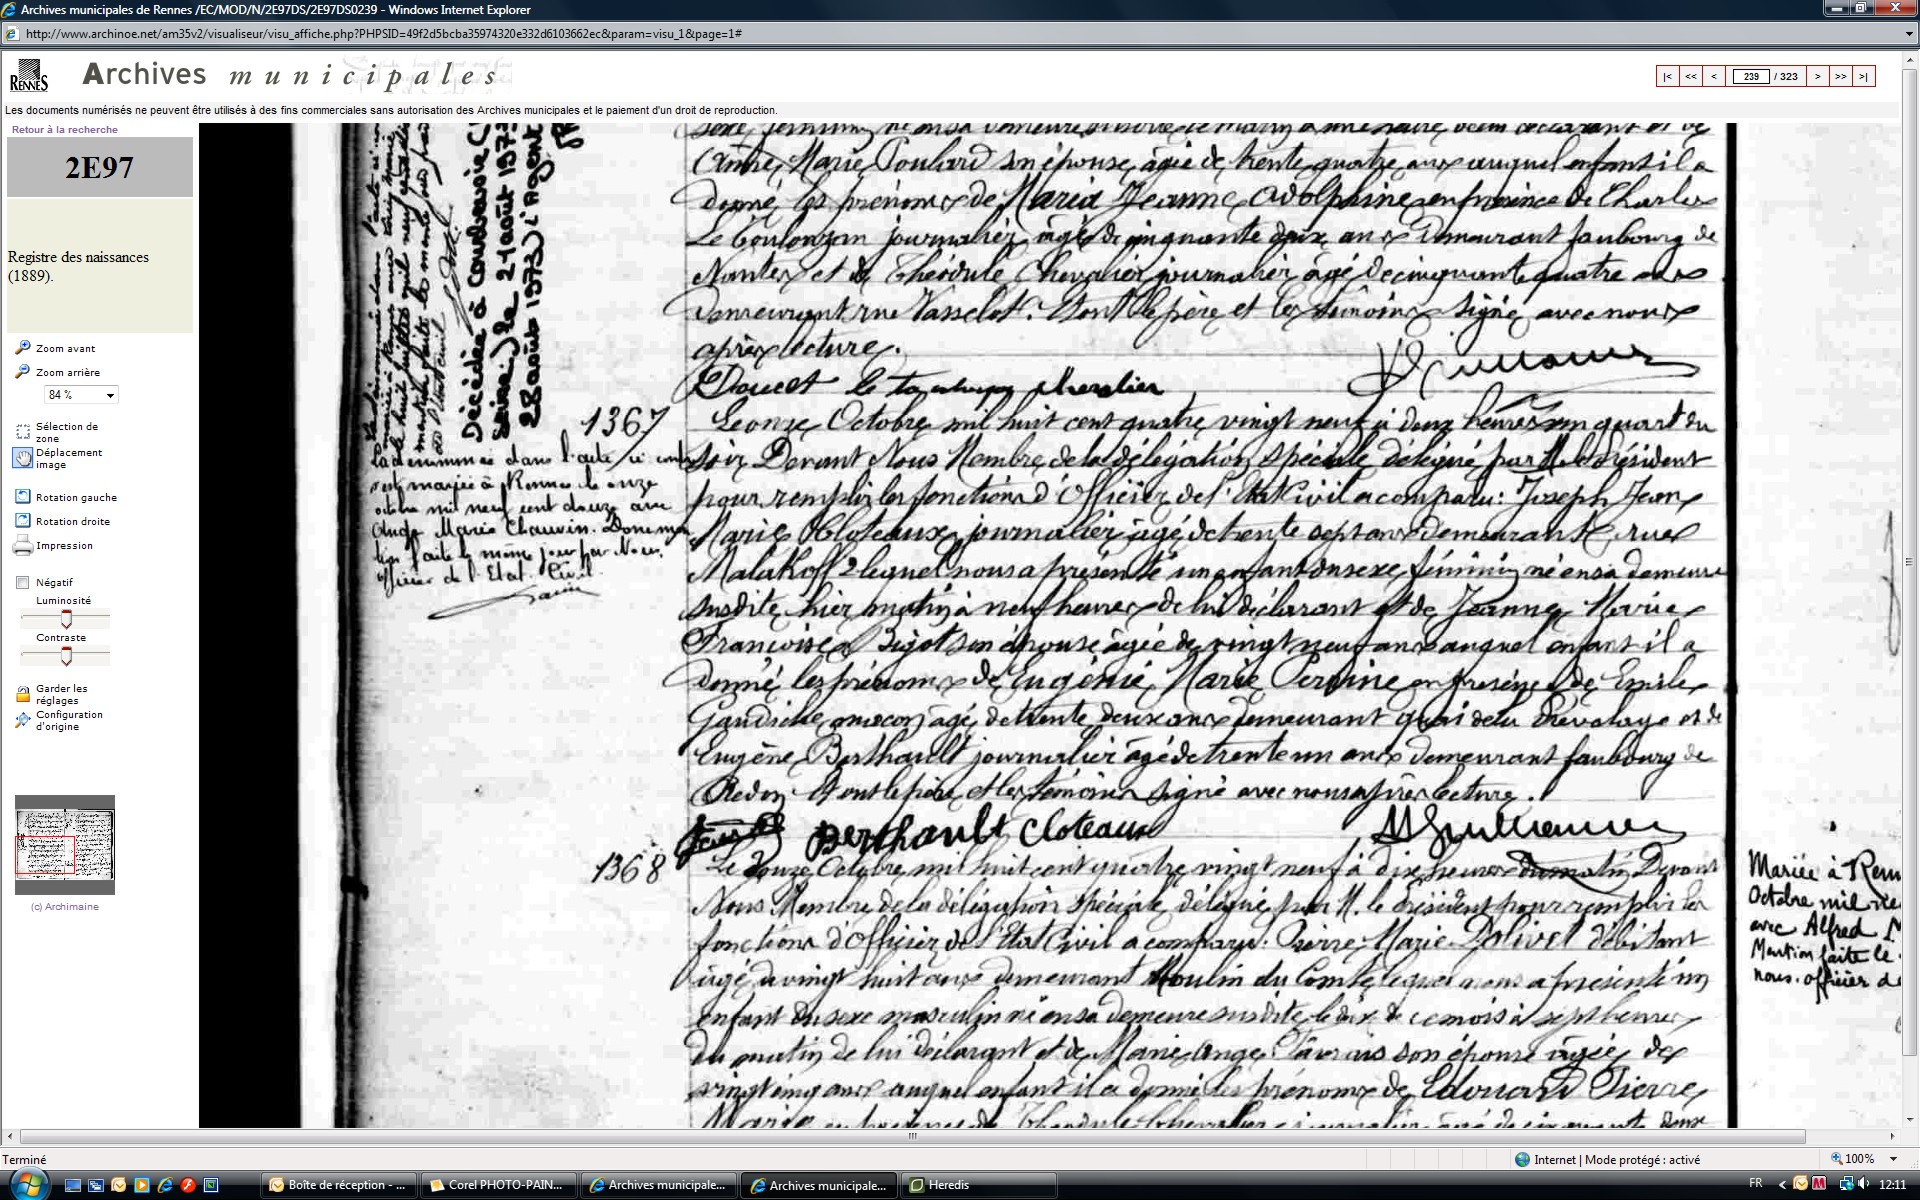 Archives municipales de Rennes /EC/MOD/N/2E97DS/2E97DS0239 - Windows Internet Explorer
http://www.archinoe.net/am35v2/visualiseur/visu_affiche.php?PHPSID=49f2d5bcba35974320e332d6103662ec&param=visu_1&page=1#
RENNES
Archives municipales
|< << < 239 / 323 > >> >|
Les documents numérisés ne peuvent être utilisés à des fins commerciales sans autorisation des Archives municipales et le paiement d'un droit de reproduction.
Retour à la recherche
2E97
Registre des naissances
(1889).
Zoom avant
Zoom arrière
84 %
Sélection de
zone
Déplacement
image
Rotation gauche
Rotation droite
Impression
Négatif
Luminosité
Contraste
Garder les
réglages
Configuration
d'origine
(c) Archimaine
Décédée à Courbevoie
Seine) le 21 août 197
28 août 1973 l'Agent
Anne Marie Poulard son épouse, âgée de trente quatre ans auquel enfant il a
donné les prénoms de Maria Jeanne Adolphine en présence de Charles
Le Toulouzan journalier âgé de cinquante deux ans demeurant faubourg de
Nantes et de Théodule Chevalier journalier âgé de cinquante quatre ans
demeurant rue Vasselot. Dont le père et les témoins signé avec nous
après lecture.
Doucet Chevalier
1367
Le onze Octobre mil huit cent quatre vingt neuf à deux heures un quart du
soir Devant Nous Membre de la délégation spéciale délégué par M. le Président
pour remplir les fonctions d'Officier de l'Etat Civil a comparu: Joseph Jean
Marie Cloteaux journalier âgé de trente sept ans demeurant rue
Malakoff 2 lequel nous a présenté un enfant du sexe féminin né en sa demeure
susdite hier matin à neuf heures de lui déclarant et de Jeanne Marie
Françoise Bigot son épouse âgée de vingt neuf ans auquel enfant il a
donné les prénoms de Eugénie Marie Perrine en présence de Emile
Gandiche maçon âgé de trente deux ans demeurant quai de la Prévalaye et de
Eugène Berthault journalier âgé de trente un ans demeurant faubourg de
Redon Dont le père et les témoins signé avec nous après lecture.
Berthault Cloteaux
La dénommée dans l'acte ci contre
s'est mariée à Rennes le onze
octobre mil neuf cent douze avec
Ange Marie Chauvin. Dont men
tion faite le même jour par Nous
officier de l'Etat Civil.
1368
Le douze Octobre mil huit cent quatre vingt neuf à dix heures du matin Devant
Nous Membre de la délégation spéciale délégué par M. le Président pour remplir les
fonctions d'Officier de l'Etat Civil a comparu: Pierre Marie Dolivet débitant
âgé de vingt huit ans demeurant Moulin du Comte lequel nous a présenté un
enfant du sexe masculin né en sa demeure susdite le dix de ce mois à sept heures
du matin de lui déclarant et de Marie Ange son épouse âgée de
vingt cinq ans auquel enfant il a donné les prénoms de Edouard Pierre
Marie en présence de Théodule Chevalier journalier âgé de cinquante
Mariée à Renn
Octobre mil ne
avec Alfred M
Mention faite le
nous. officier de
Terminé
Internet | Mode protégé : activé
100%
Boîte de réception - ...
Corel PHOTO-PAIN...
Archives municipale...
Archives municipale...
Heredis
FR
12:11